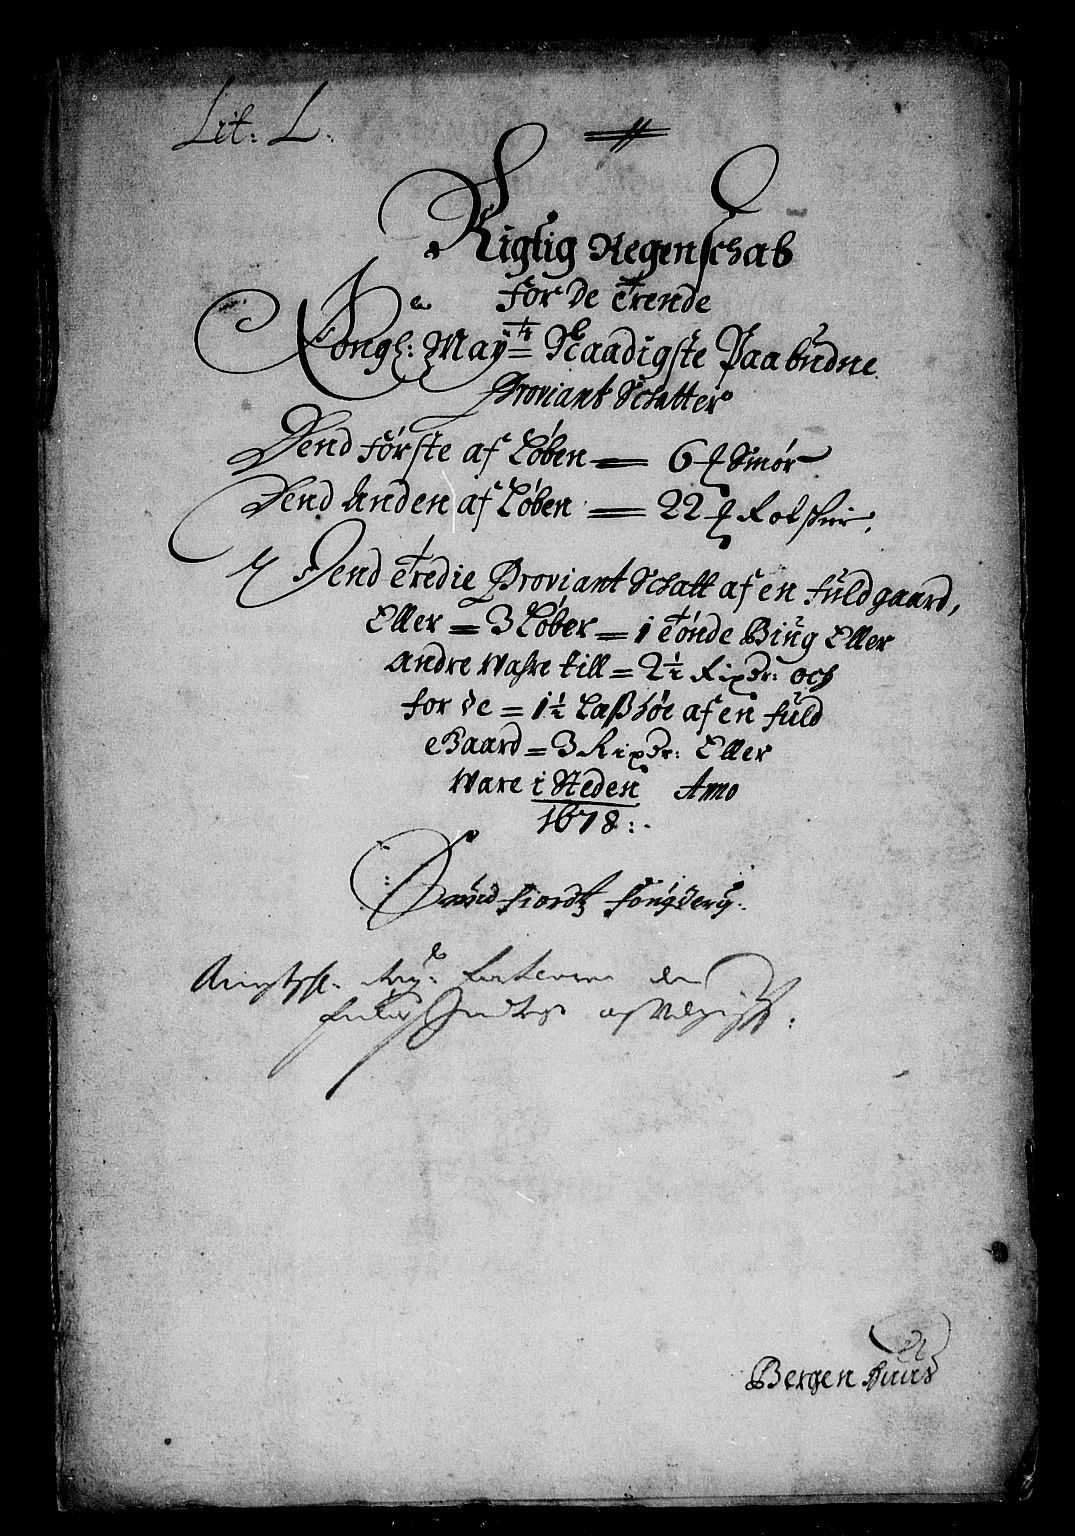 Lit: L.
Rigtig Regenschab
for De trende
Kongl: May:tt Naadigste Paabudne
Proviant Schatter
Dend förste af Löben = 6 ℔ Smör
Dend Anden af Löben = 22 ℔
Dend tredie Proviant Schatt af en fuldgaard,
Eller = 3 Löber = 1 tönde Biug Eller
Andre Wahre till = 2½ Rixdr: och
for de = 1½ Laß höe af en fuld
Gaard = 3 Rixdr: Eller
Ware i Steden Anno
1678:.
Bergen Huus